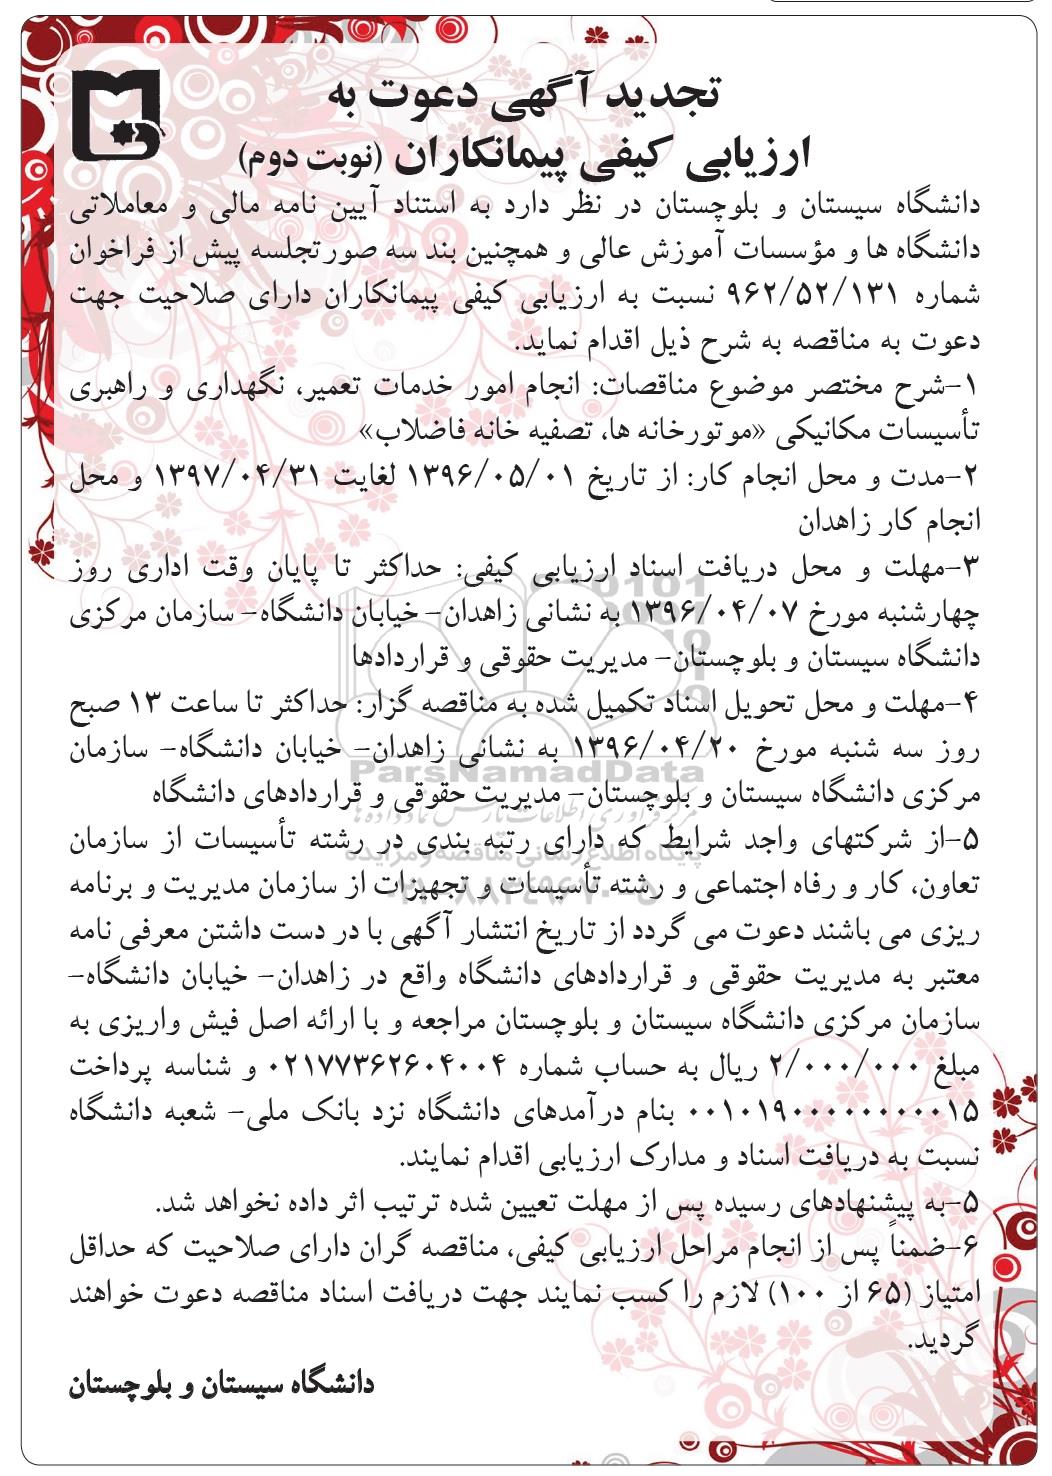 تجدید آگهی دعوت به
ارزیابی کیفی پیمانکاران (نوبت دوم)
دانشگاه سیستان و بلوچستان در نظر دارد به استناد آیین نامه مالی و معاملاتی
دانشگاه ها و مؤسسات آموزش عالی و همچنین بند سه صورتجلسه پیش از فراخوان
شماره ۹۶۲/۵۲/۱۳۱ نسبت به ارزیابی کیفی پیمانکاران دارای صلاحیت جهت
دعوت به مناقصه به شرح ذیل اقدام نماید.
۱-شرح مختصر موضوع مناقصات: انجام امور خدمات تعمیر، نگهداری و راهبری
تأسیسات مکانیکی «موتورخانه ها، تصفیه خانه فاضلاب»
۲-مدت و محل انجام کار: از تاریخ ۱۳۹۶/۰۵/۰۱ لغایت ۱۳۹۷/۰۴/۳۱ و محل
انجام کار زاهدان
۳-مهلت و محل دریافت اسناد ارزیابی کیفی: حداکثر تا پایان وقت اداری روز
چهارشنبه مورخ ۱۳۹۶/۰۴/۰۷ به نشانی زاهدان- خیابان دانشگاه- سازمان مرکزی
دانشگاه سیستان و بلوچستان- مدیریت حقوقی و قراردادها
۴-مهلت و محل تحویل اسناد تکمیل شده به مناقصه گزار: حداکثر تا ساعت ۱۳ صبح
روز سه شنبه مورخ ۱۳۹۶/۰۴/۲۰ به نشانی زاهدان- خیابان دانشگاه- سازمان
ParsNamadData
مرکزی دانشگاه سیستان و بلوچستان- مدیریت حقوقی و قراردادهای دانشگاه
مرکز فرآوری اطلاعات پارس نماد داده ها
۵-از شرکتهای واجد شرایط که دارای رتبه بندی در رشته تأسیسات از سازمان
پایگاه اطلاع رسانی مناقصه و مزایده
تعاون، کار و رفاه اجتماعی و رشته تأسیسات و تجهیزات از سازمان مدیریت و برنامه
۰۲۱-۸۸۳۴۹۶۷۰-۵
ریزی می باشند دعوت می گردد از تاریخ انتشار آگهی با در دست داشتن معرفی نامه
معتبر به مدیریت حقوقی و قراردادهای دانشگاه واقع در زاهدان- خیابان دانشگاه-
سازمان مرکزی دانشگاه سیستان و بلوچستان مراجعه و با ارائه اصل فیش واریزی به
مبلغ ۲/۰۰۰/۰۰۰ ریال به حساب شماره ۰۲۱۷۷۳۶۲۶۰۴۰۰۴ و شناسه پرداخت
۰۰۱۰۱۹۰۰۰۰۰۰۰۰۰۱۵ بنام درآمدهای دانشگاه نزد بانک ملی- شعبه دانشگاه
نسبت به دریافت اسناد و مدارک ارزیابی اقدام نمایند.
۵-به پیشنهادهای رسیده پس از مهلت تعیین شده ترتیب اثر داده نخواهد شد.
۶-ضمناً پس از انجام مراحل ارزیابی کیفی، مناقصه گران دارای صلاحیت که حداقل
امتیاز (۶۵ از ۱۰۰) لازم را کسب نمایند جهت دریافت اسناد مناقصه دعوت خواهند
گردید.
دانشگاه سیستان و بلوچستان